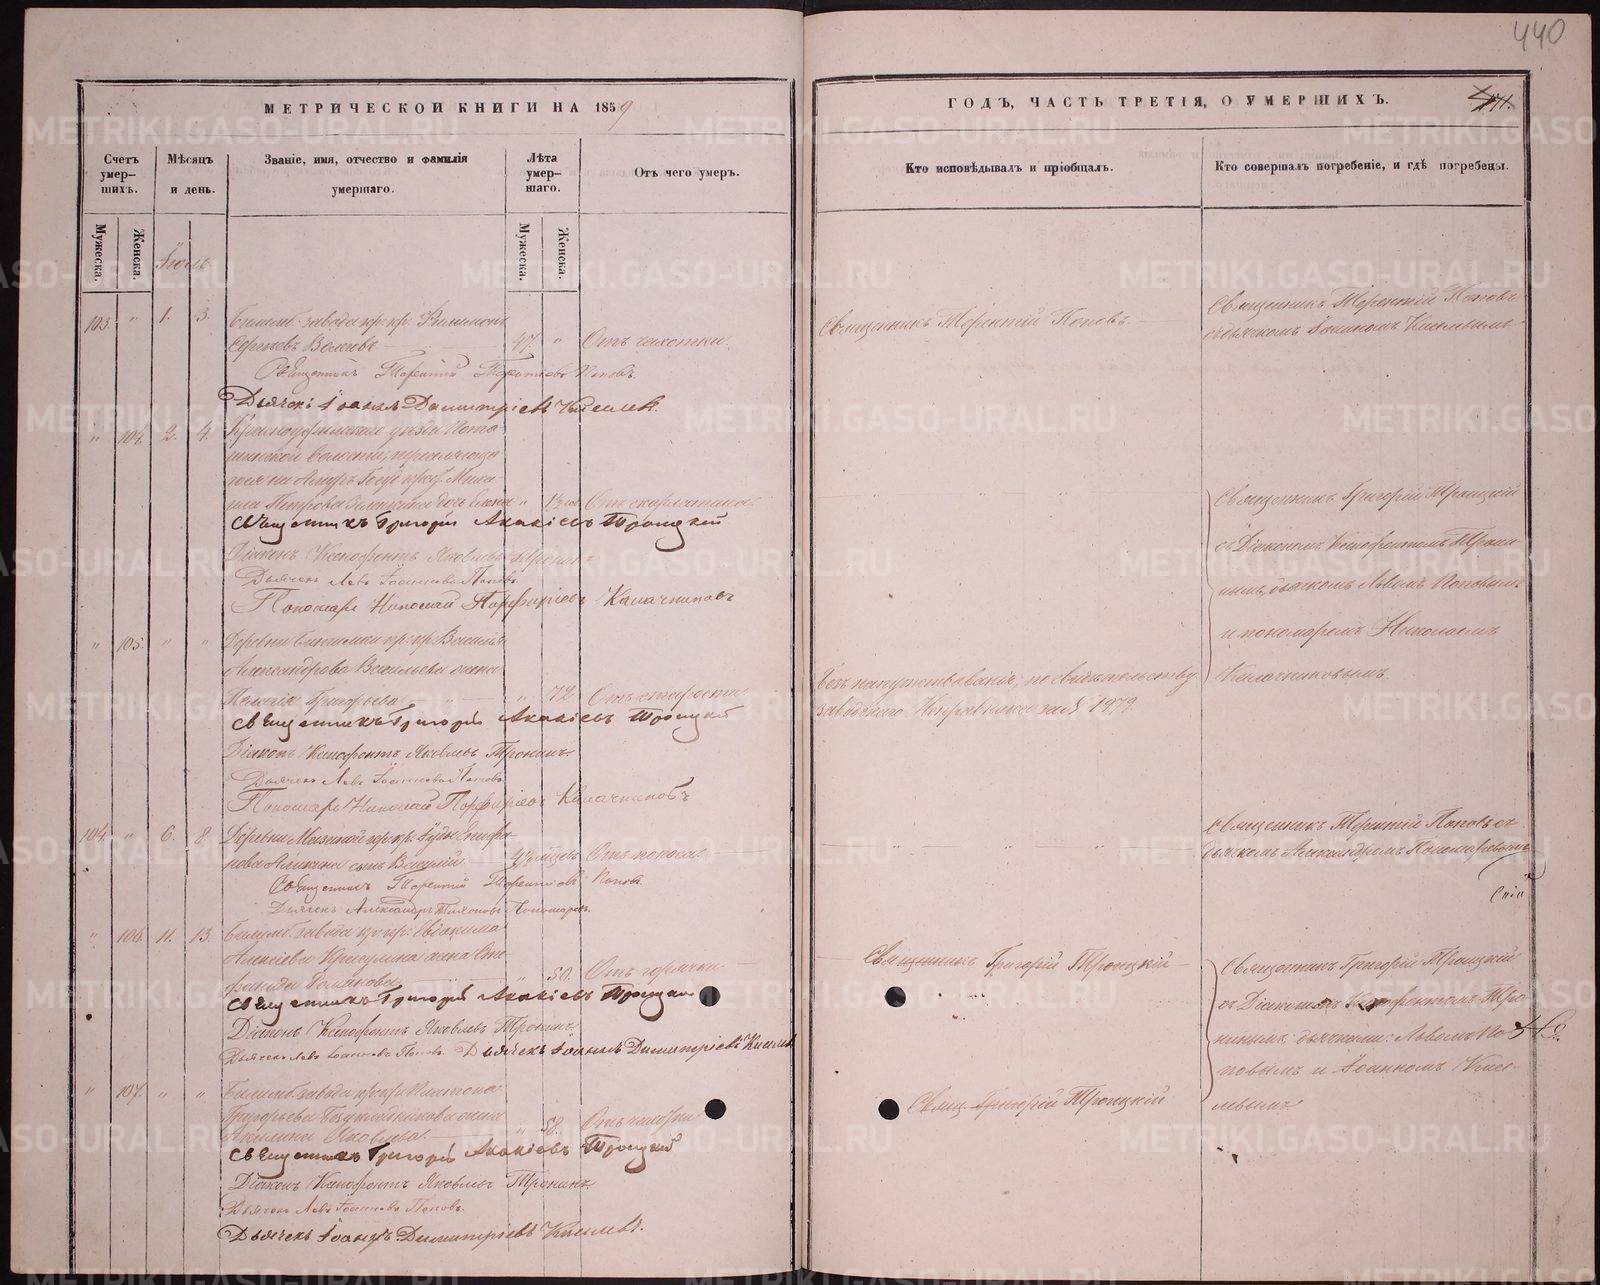 440
МЕТРИЧЕСКОЙ КНИГИ НА 1859
ГОДЪ, ЧАСТЬ ТРЕТІЯ, О УМЕРШИХЪ.
Счетъ умер-
шихъ.
Мѣсяцъ
и день.
Званіе, имя, отчество и фамилія
умершаго.
Лѣта
умер-
шаго.
Отъ чего умеръ.
Кто исповѣдывалъ и пріобщалъ.
Кто совершалъ погребеніе, и гдѣ погребены.
Мужеска.
Женска.
Мужеска.
Женска.
Іюль
103. " 1. 3. Билимб. завода кр: кр: Филимонъ
Сергѣевъ 47 " Отъ чахотки.
Священникъ Терентій Поповъ
Священникъ Терентій Поповъ
съ дьячкомъ Іоанномъ Киселевымъ
Священникъ Терентій Терентьевъ Поповъ.
Дьячекъ Іоаннъ Димитріевъ Киселевъ.
" 104. 2. 4. Красноуфимскаго уѣзда
волости,
Петрова дочь Елена " Отъ скарлатины.
Священникъ Григорій Троицкій
Священникъ Григорій Акакіевъ Троицкій
съ Діакономъ Ксенофонтомъ Трони-
Діаконъ Ксенофонтъ Яковлевъ Тронинъ.
Дьячекъ Левъ Іоанновъ Поповъ.
нымъ, дьячкомъ Львомъ Поповымъ
Пономарь Николай Порфирьевъ Калачниковъ
и пономаремъ Николаемъ
Калачниковымъ.
" 105. " " Деревни кр: кр: Василья
Александрова Васильева жена
Пелагія Григорьева " 72. Отъ старости.
Безъ напутствованія, по свидѣтельству
заводскаго Исправника за № 1979.
Священникъ Григорій Акакіевъ Троицкій
Діаконъ Ксенофонтъ Яковлевъ Тронинъ.
Дьячекъ Левъ Іоанновъ Поповъ.
Пономарь Николай Порфирьевъ Калачниковъ
104. " 6. 8. Деревни кр: кр:
сынъ Василій Отъ поноса.
Священникъ Терентій Поповъ съ
дьячкомъ Александромъ Пономаревымъ
Священникъ Терентій Терентіевъ Поповъ.
Дьячекъ Александръ Пономаревъ.
" 106. 11. 13. Билимб. завода кр: кр: Евдокима
Алексѣева жена Сте-
фанида " 50. Отъ горячки
Священникъ Григорій Троицкій
Священникъ Григорій Троицкій
Священникъ Григорій Акакіевъ Троицкій
съ Діакономъ Ксенофонтомъ Тро-
Діаконъ Ксенофонтъ Яковлевъ Тронинъ.
нинымъ, дьячками: Львомъ По-
Дьячекъ Левъ Іоанновъ Поповъ. Дьячекъ Іоаннъ Димитріевъ Киселевъ
повымъ и Іоанномъ Кисе-
левымъ
" 107. " " Билимб. завода кр: кр: Платона
Григорьева жена
Акилина Яковлева. " 58. Отъ чахотки
Свящ. Григорій Троицкій
Священникъ Григорій Акакіевъ Троицкій
Діаконъ Ксенофонтъ Яковлевъ Тронинъ.
Дьячекъ Левъ Іоанновъ Поповъ.
Дьячекъ Іоаннъ Димитріевъ Киселевъ.
METRIKI.GASO-URAL.RU